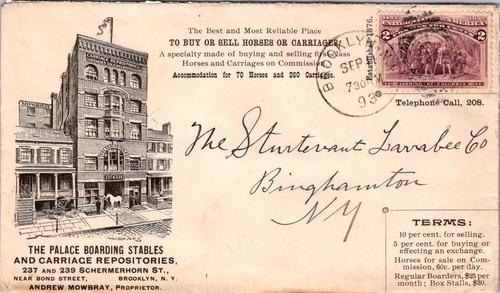 The Best and Most Reliable Place
TO BUY OR SELL HORSES OR CARRIAGES.
A specialty made of buying and selling first-class
Horses and Carriages on Commission.
Accommodation for 70 Horses and 260 Carriages.
Established 1876.
BROOKLYN
SEP
730
93
2
2
LANDING OF COLUMBUS
Telephone Call, 208.
The Sturtevant Larrabee Co
Binghamton
NY
THE PALACE BOARDING STABLES
AND CARRIAGE REPOSITORIES,
237 AND 239 SCHERMERHORN ST.,
NEAR BOND STREET, BROOKLYN, N. Y.
ANDREW MOWBRAY, PROPRIETOR.
TERMS:
10 per cent. for selling.
5 per cent. for buying or
effecting an exchange.
Horses for sale on Com-
mission, 60c. per day.
Regular Boarders, $25 per
month; Box Stalls, $30.